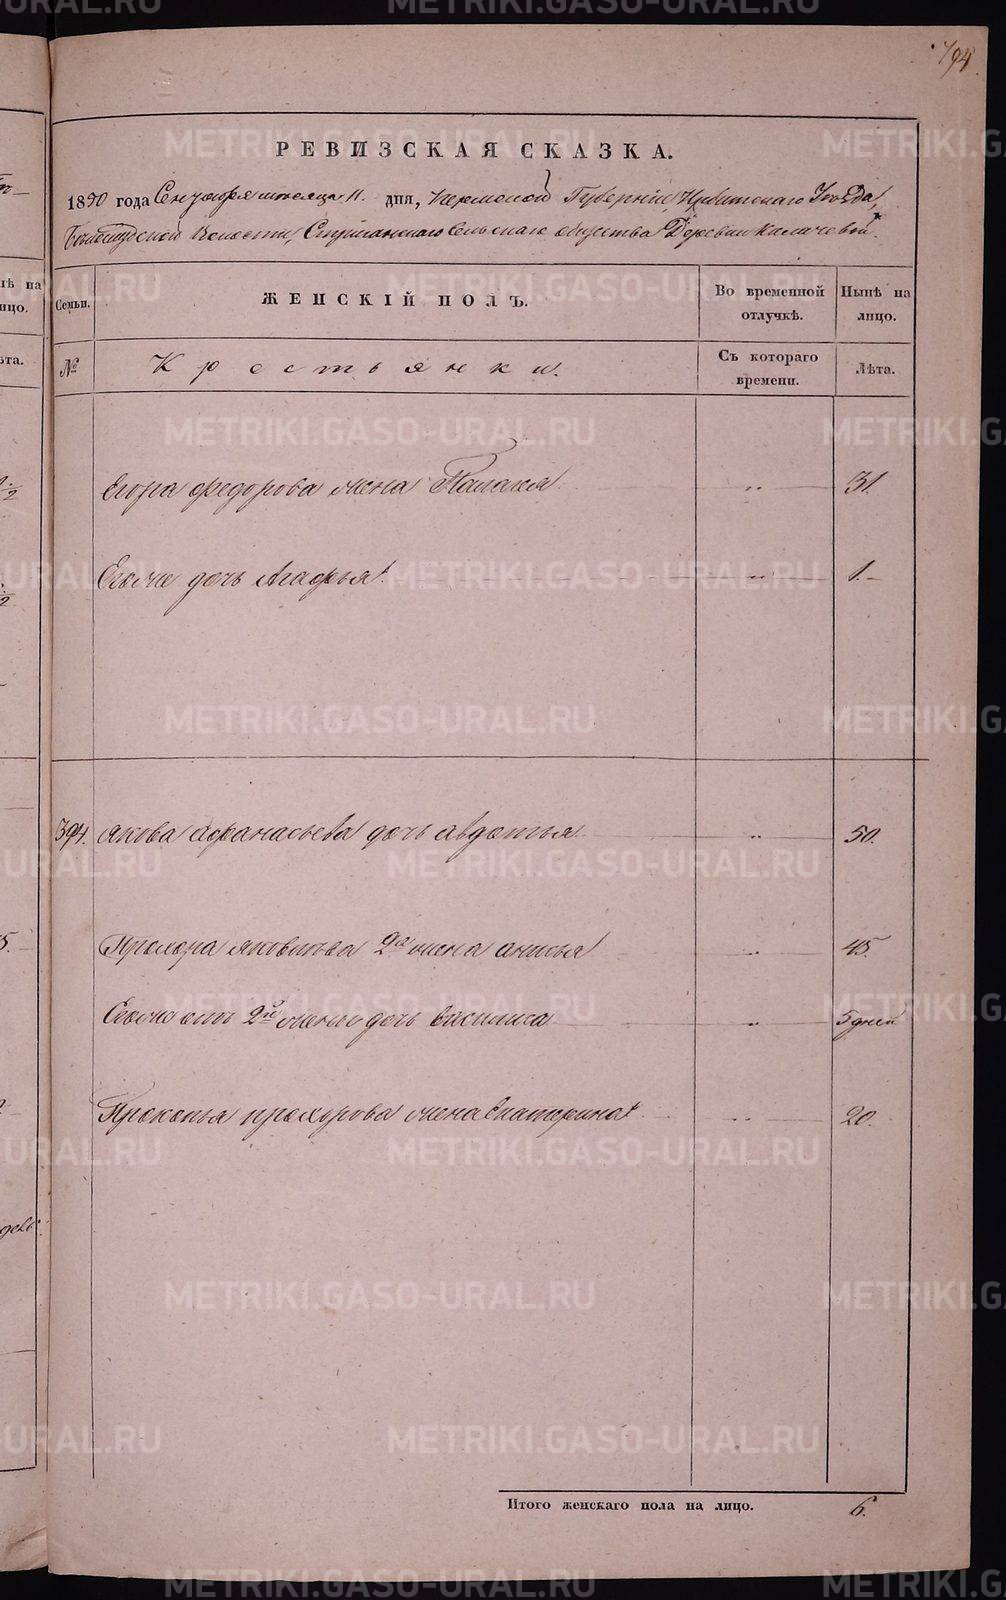 794
РЕВИЗСКАЯ СКАЗКА.
1850 года Сентября месяца 11 дня, Пермской Губернии, Ирбитского Уезда,
Волости, Стриганского Сельского общества Деревни Калачевой.
Семьи.
ЖЕНСКІЙ ПОЛЪ.
Во временной отлучкѣ.
Нынѣ на лицо.
№
Крестьянки.
Съ котораго времени.
Лѣта.
Егора Федорова жена Палагея " 31.
Егоже дочь Агафья " 1.
394. Якова Афанасьева дочь Авдотья " 50.
Прохора Яковлева 2я жена Анисья " 45.
Егоже отъ 2й жены дочь Василиса " 5 дней
Прокопья Прохорова жена Екатерина " 20.
Итого женскаго пола на лицо. 6.
METRIKI.GASO-URAL.RU